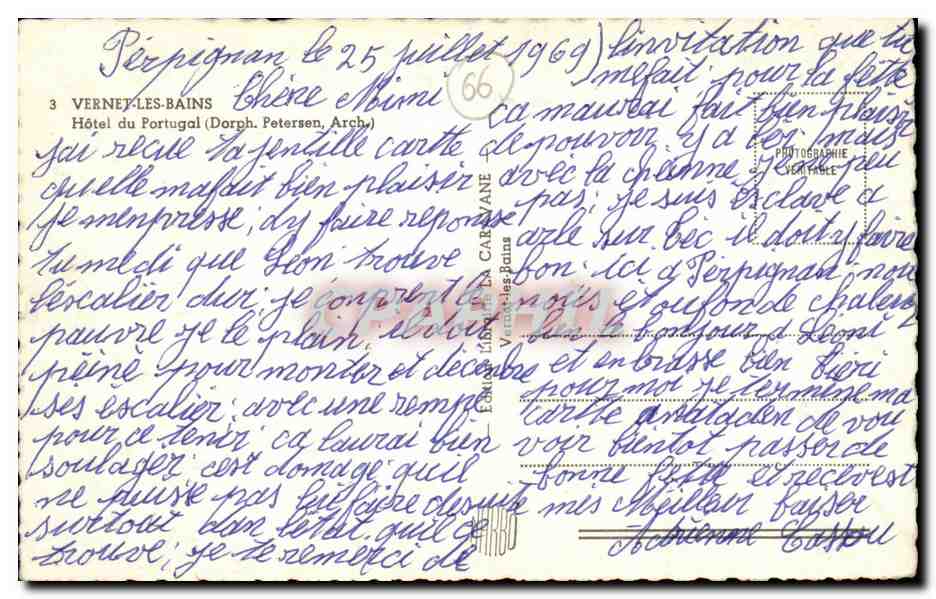 Perpignan le 25 juillet 1969
3 VERNET-LES-BAINS
Hôtel du Portugal (Dorph. Petersen, Arch.)
Chère Mimi
jai reçue ta jentille cartte
quelle mafait bien plaisir
je menpresse, dy faire reponse
tumedi que Léon trouve
léscalier dur, je conprent le
pauvre je le plain, il doit
péiné pour monter et décendre
sés éscalier, avec une rempe
pour ce tenir ca laurai bien
soulager c'est domage quil
ne puisse pas lui faire desuite
surtout dan létat quil ce
trouve, je te remerci de
linvitation que tu
mefait pour la fette
ca maurai fait bien plaisir
de pouvoir y a ler mais
avéc la chienne, je ne peu
pas, je suis ésclave a
arle sur béc il doit y faire
bon. ici a Pérpignan nou
nous étoufon de chaleur
dis le bonjour a Léoni
et enbrasse bien
pour moi je termine ma
cartte de vou
voir bientot passer de
bonne fette et recevest
mes Meilleur baiser
Adrienne
66
PHOTOGRAPHIE
VÉRITABLE
LA CARAVANE
Vernet-les-Bains
CPARAMA